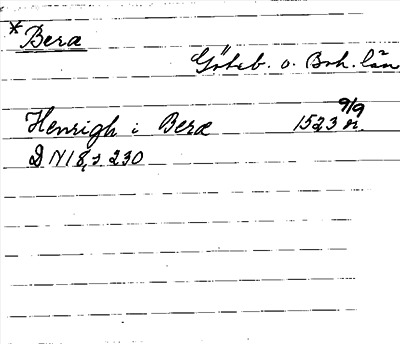 *Bera
Göteb. o. Boh. län
Henrigh i Beræ 1523 9/9 n.
DN 18, s 230